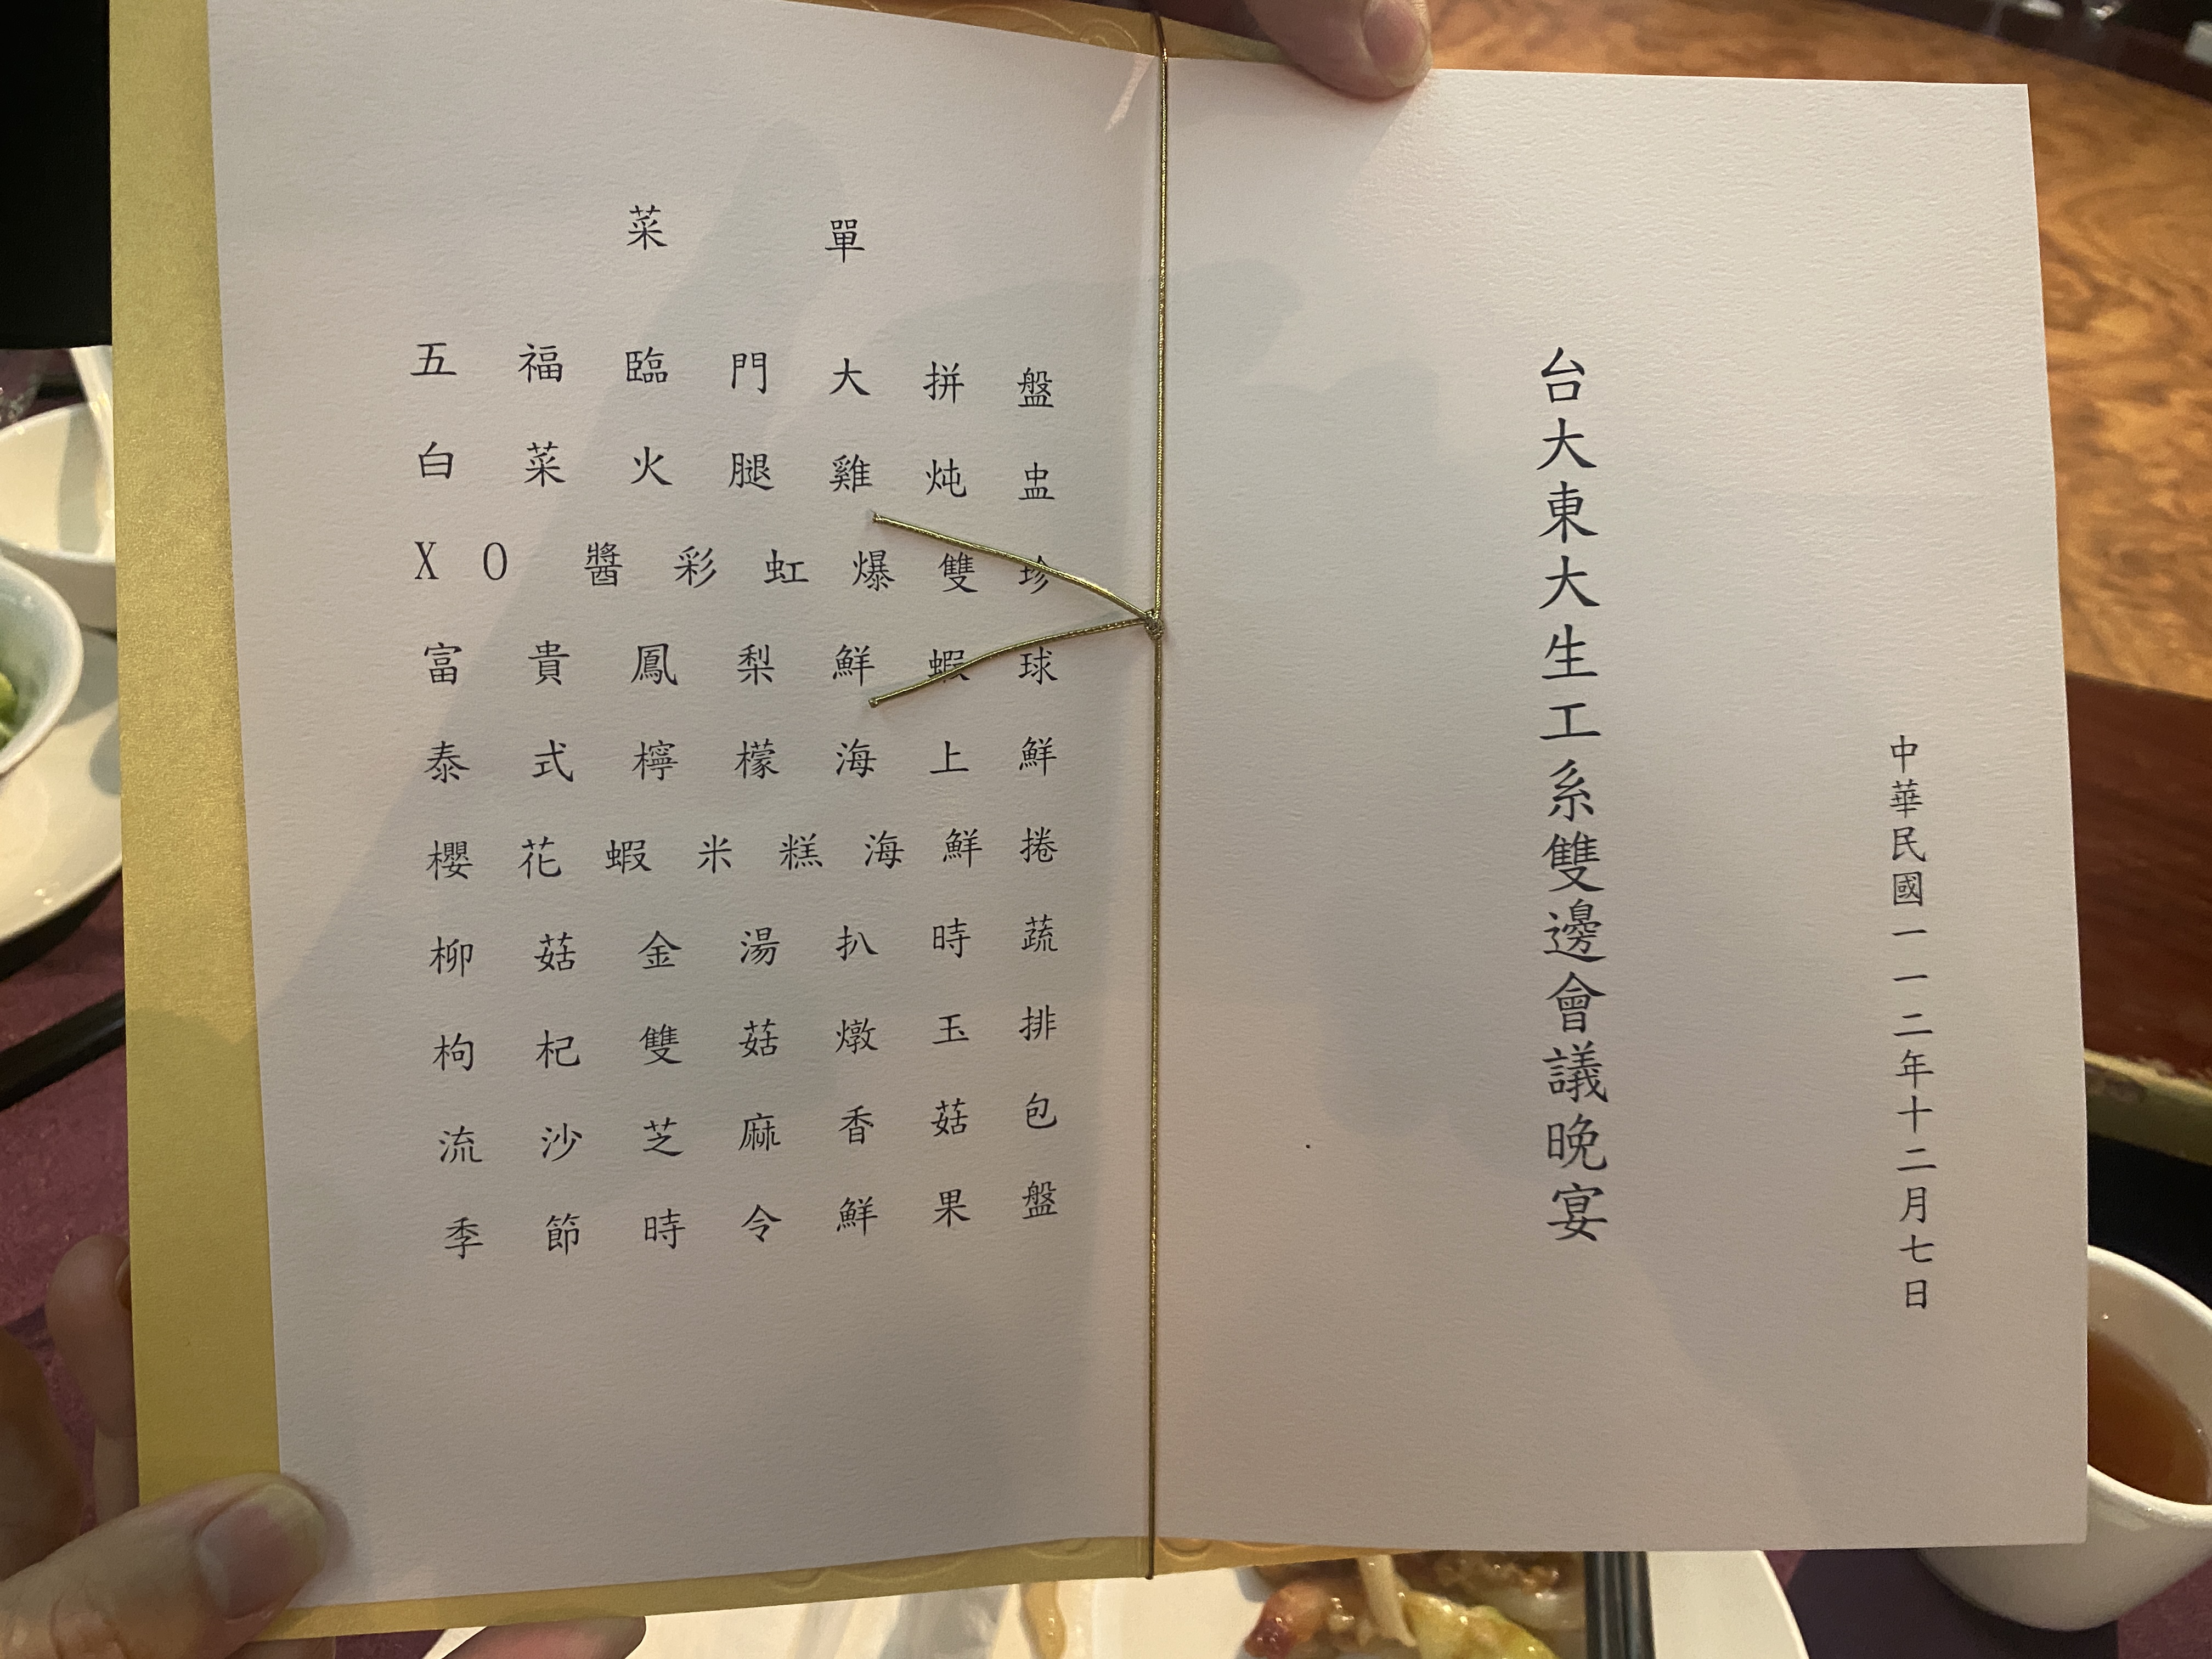 中華民國一一二年十二月七日
台大東大生工系雙邊會議晚宴
菜單
五福臨門大拼盤
白菜火腿雞炖盅
XO醬彩虹爆雙珍
富貴鳳梨鮮蝦球
泰式檸檬海上鮮
櫻花蝦米糕海鮮捲
柳菇金湯扒時蔬
枸杞雙菇燉玉排
流沙芝麻香菇包
季節時令鮮果盤